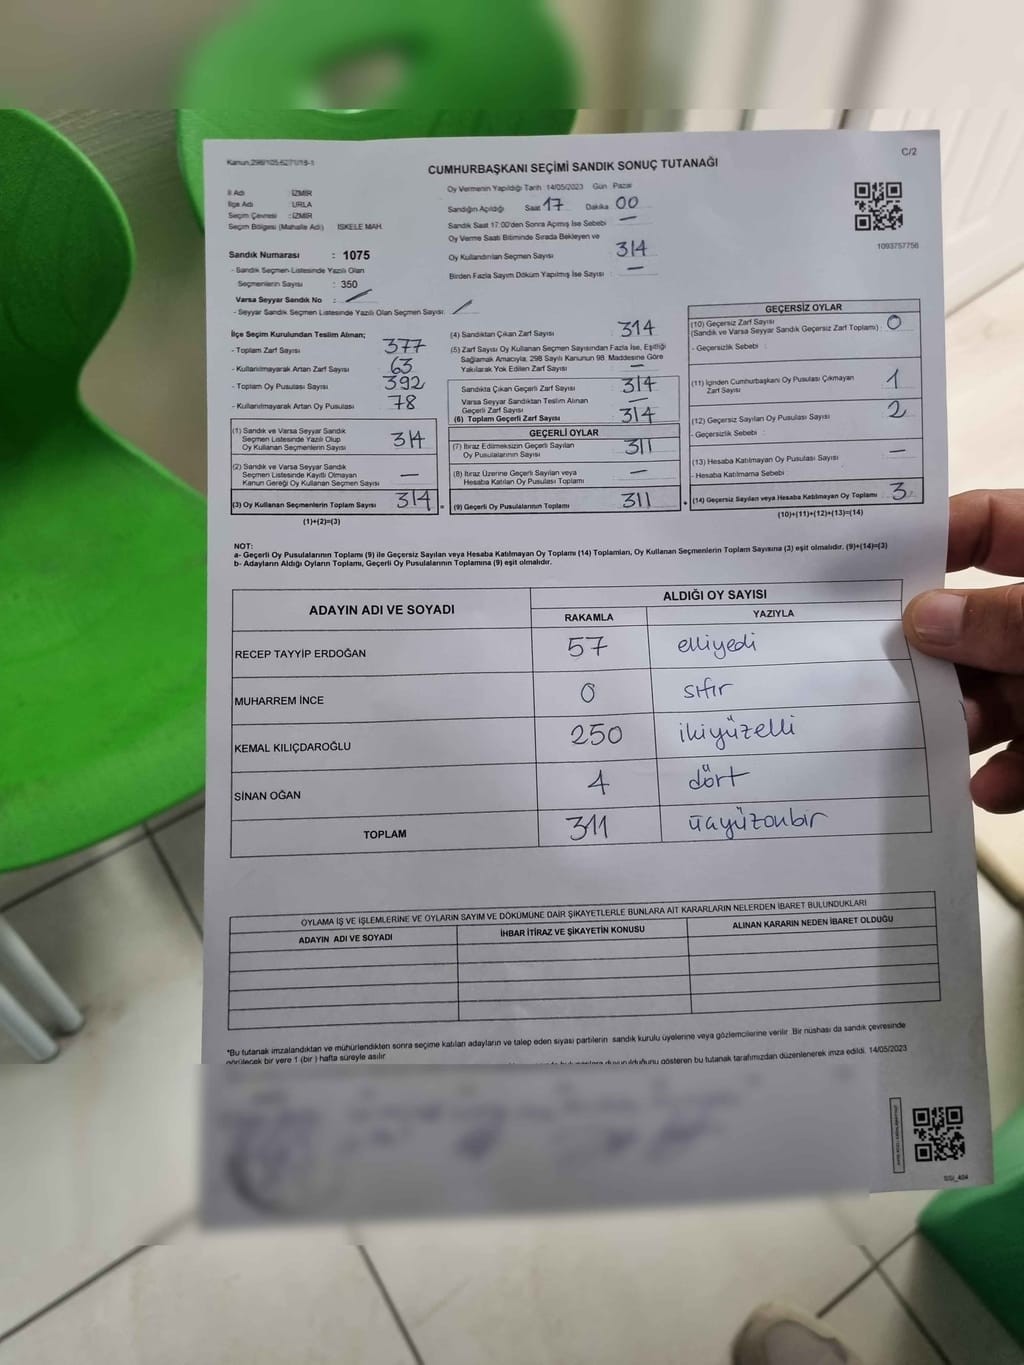 Kanun,298/105-6271/18-1
C/2
CUMHURBAŞKANI SEÇİMİ SANDIK SONUÇ TUTANAĞI
İl Adı : İZMİR
İlçe Adı : URLA
Seçim Çevresi : İZMİR
Seçim Bölgesi (Mahalle Adı) İSKELE MAH.
Sandık Numarası : 1075
- Sandık Seçmen Listesinde Yazılı Olan
Seçmenlerin Sayısı : 350
Varsa Seyyar Sandık No :
- Seyyar Sandık Seçmen Listesinde Yazılı Olan Seçmen Sayısı:
Oy Vermenin Yapıldığı Tarih : 14/05/2023 Gün Pazar
Sandığın Açıldığı Saat 17 Dakika 00
Sandık Saat 17:00'den Sonra Açmış İse Sebebi —
Oy Verme Saati Bitiminde Sırada Bekleyen ve
Oy Kullandırılan Seçmen Sayısı 314
Birden Fazla Sayım Döküm Yapılmış İse Sayısı : —
1093757756
İlçe Seçim Kurulundan Teslim Alınan;
- Toplam Zarf Sayısı 377
- Kullanılmayarak Artan Zarf Sayısı 63
- Toplam Oy Pusulası Sayısı 392
- Kullanılmayarak Artan Oy Pusulası 78
(1) Sandık ve Varsa Seyyar Sandık
Seçmen Listesinde Yazılı Olup
Oy Kullanan Seçmenlerin Sayısı 314
(2) Sandık ve Varsa Seyyar Sandık
Seçmen Listesinde Kayıtlı Olmayan
Kanun Gereği Oy Kullanan Seçmen Sayısı —
(3) Oy Kullanan Seçmenlerin Toplam Sayısı 314
(1)+(2)=(3)
(4) Sandıktan Çıkan Zarf Sayısı 314
(5) Zarf Sayısı Oy Kullanan Seçmen Sayısından Fazla İse, Eşitliği
Sağlamak Amacıyla, 298 Sayılı Kanunun 98. Maddesine Göre
Yakılarak Yok Edilen Zarf Sayısı : —
Sandıkta Çıkan Geçerli Zarf Sayısı 314
Varsa Seyyar Sandıktan Teslim Alınan
Geçerli Zarf Sayısı —
(6) Toplam Geçerli Zarf Sayısı 314
GEÇERLİ OYLAR
(7) İtiraz Edilmeksizin Geçerli Sayılan
Oy Pusulalarının Sayısı 311
(8) İtiraz Üzerine Geçerli Sayılan veya
Hesaba Katılan Oy Pusulası Toplamı —
(9) Geçerli Oy Pusulalarının Toplamı 311
GEÇERSİZ OYLAR
(10) Geçersiz Zarf Sayısı
(Sandık ve Varsa Seyyar Sandık Geçersiz Zarf Toplamı) : 0
- Geçersizlik Sebebi :
(11) İçinden Cumhurbaşkanı Oy Pusulası Çıkmayan
Zarf Sayısı 1
(12) Geçersiz Sayılan Oy Pusulası Sayısı 2
- Geçersizlik Sebebi :
(13) Hesaba Katılmayan Oy Pusulası Sayısı —
- Hesaba Katılmama Sebebi
(14) Geçersiz Sayılan veya Hesaba Katılmayan Oy Toplamı 3
(10)+(11)+(12)+(13)=(14)
NOT:
a- Geçerli Oy Pusulalarının Toplamı (9) ile Geçersiz Sayılan veya Hesaba Katılmayan Oy Toplamı (14) Toplamları, Oy Kullanan Seçmenlerin Toplam Sayısına (3) eşit olmalıdır. (9)+(14)=(3)
b- Adayların Aldığı Oyların Toplamı, Geçerli Oy Pusulalarının Toplamına (9) eşit olmalıdır.
ADAYIN ADI VE SOYADI ALDIĞI OY SAYISI
RAKAMLA YAZIYLA
RECEP TAYYİP ERDOĞAN 57 elliyedi
MUHARREM İNCE 0 sıfır
KEMAL KILIÇDAROĞLU 250 ikiyüzelli
SİNAN OĞAN 4 dört
TOPLAM 311 üçyüzonbir
OYLAMA İŞ VE İŞLEMLERİNE VE OYLARIN SAYIM VE DÖKÜMÜNE DAİR ŞİKAYETLERLE BUNLARA AİT KARARLARIN NELERDEN İBARET BULUNDUKLARI
ADAYIN ADI VE SOYADI İHBAR İTİRAZ VE ŞİKAYETİN KONUSU ALINAN KARARIN NEDEN İBARET OLDUĞU
*Bu tutanak imzalandıktan ve mühürlendikten sonra seçime katılan adayların ve talep eden siyasi partilerin sandık kurulu üyelerine veya gözlemcilerine verilir. Bir nüshası da sandık çevresinde
görülecek bir yere 1 (bir) hafta süreyle asılır.
duyurulduğunu gösteren bu tutanak tarafımızdan düzenlenerek imza edildi. 14/05/2023